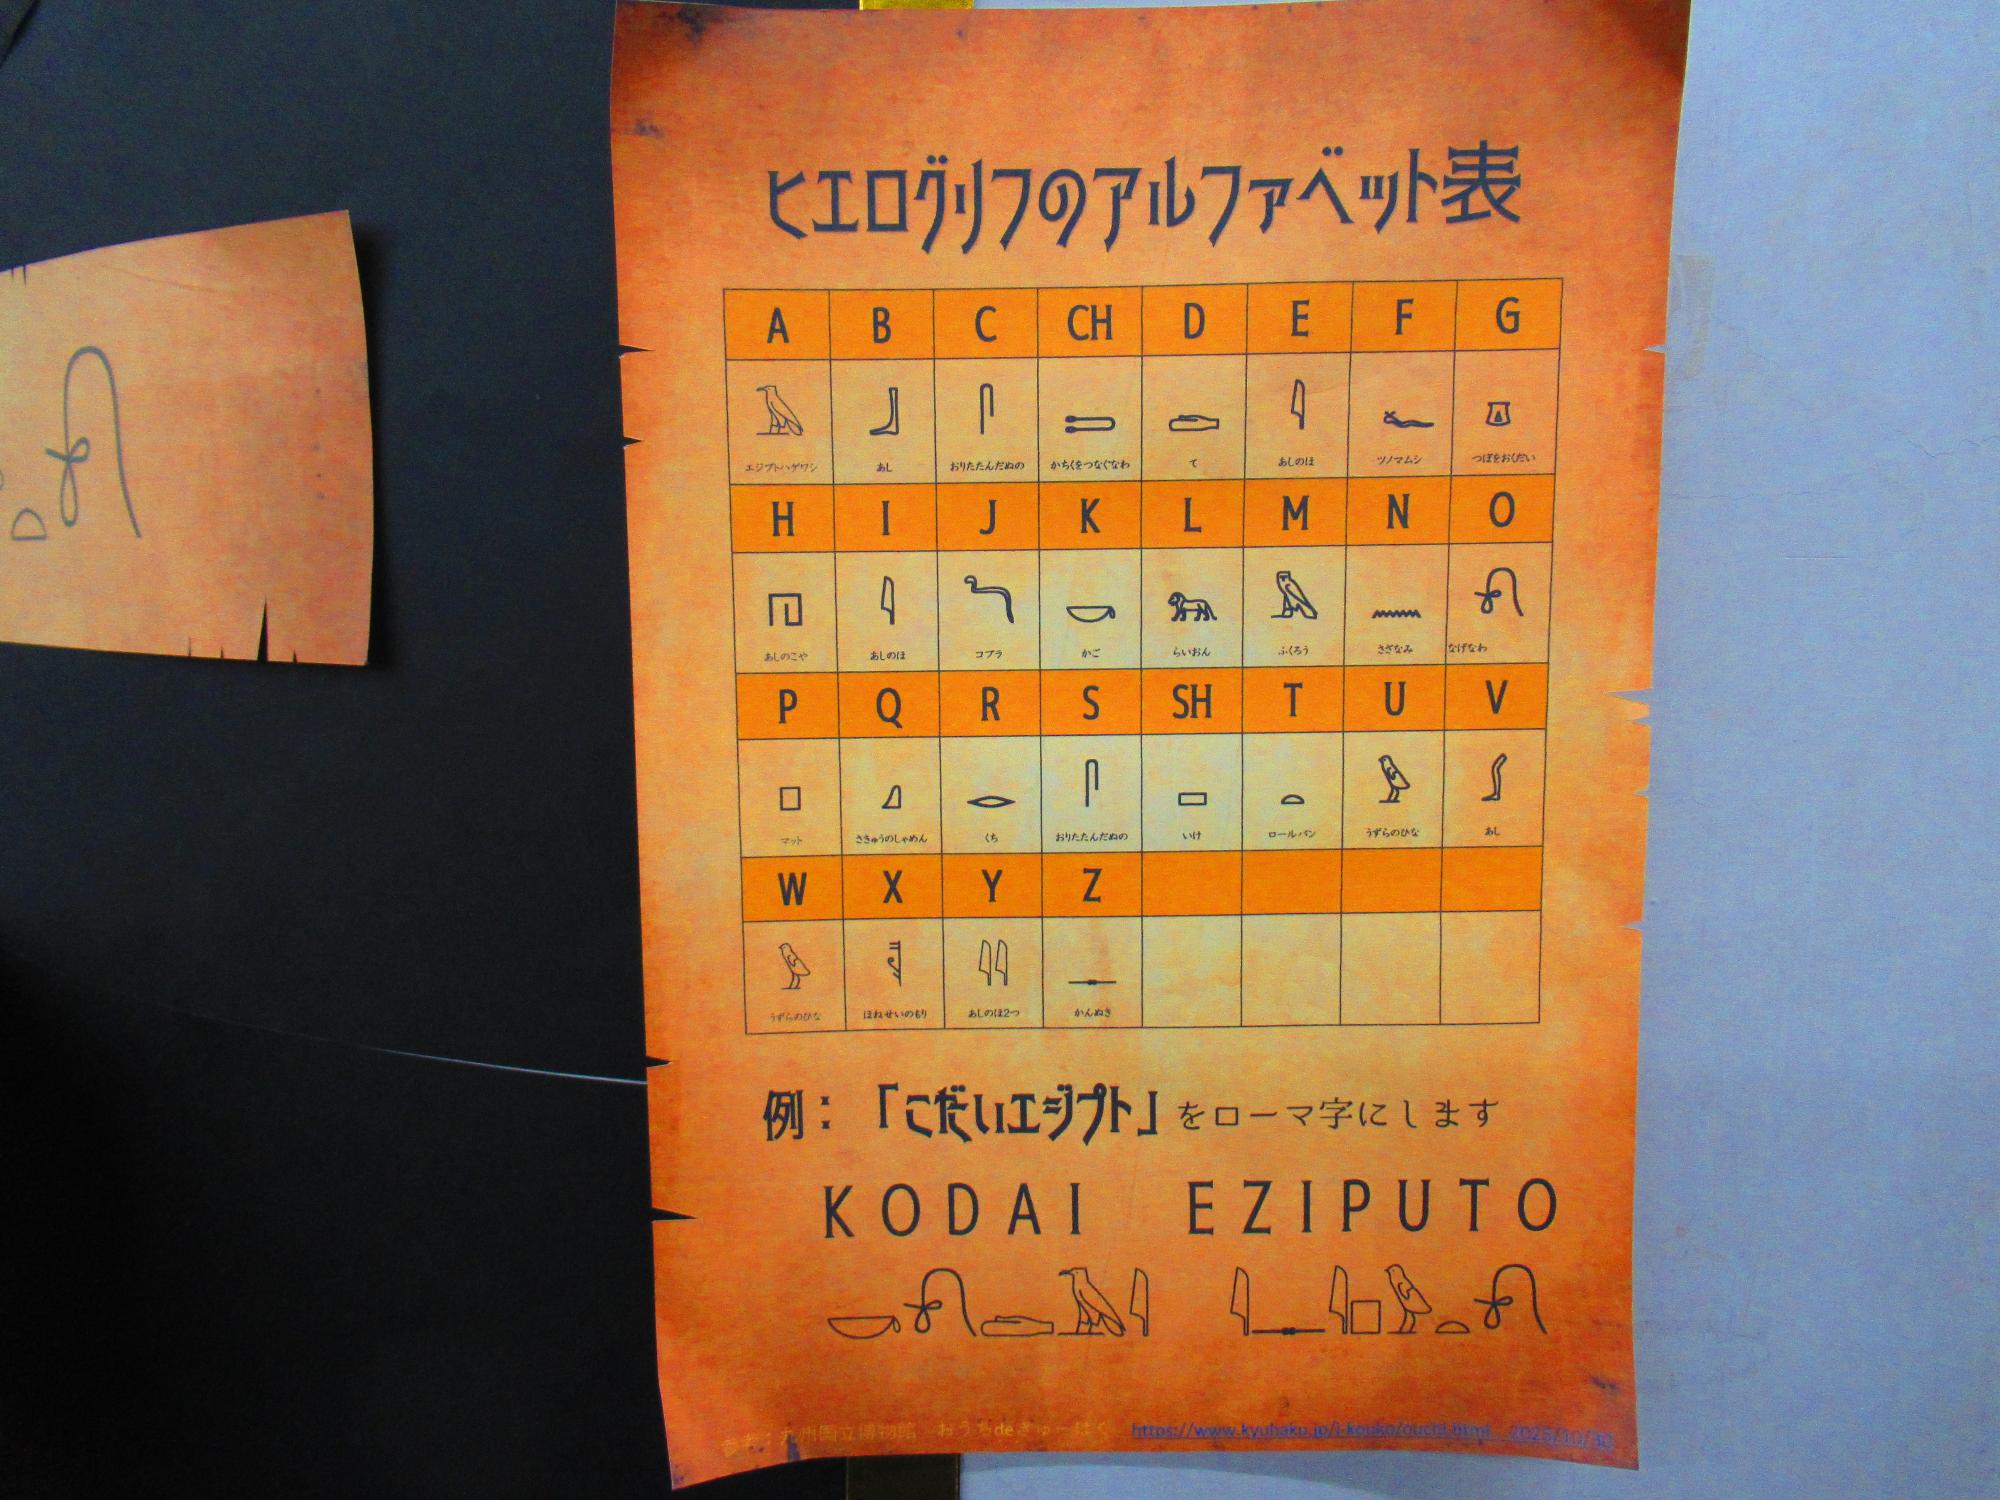 ヒエログリフのアルファベット表
A B C CH D E F G
エジプトハゲワシ あし おりたたんだぬの かちくをつなぐなわ て あしのほ ツノマムシ つぼをおくだい
H I J K L M N O
あしのこや あしのほ コブラ かご らいおん ふくろう さざなみ なげなわ
P Q R S SH T U V
マット さきゅうのしゃめん くち おりたたんだぬの いけ ロールパン うずらのひな あし
W X Y Z
うずらのひな ほねせいのもり あしのほ2つ かんぬき
例：「こだいエジプト」をローマ字にします
KODAI EZIPUTO
参考：九州国立博物館 おうちdeきゅーはく https://www.kyuhaku.jp/i-kouko/ouchi.html 2025/10/30